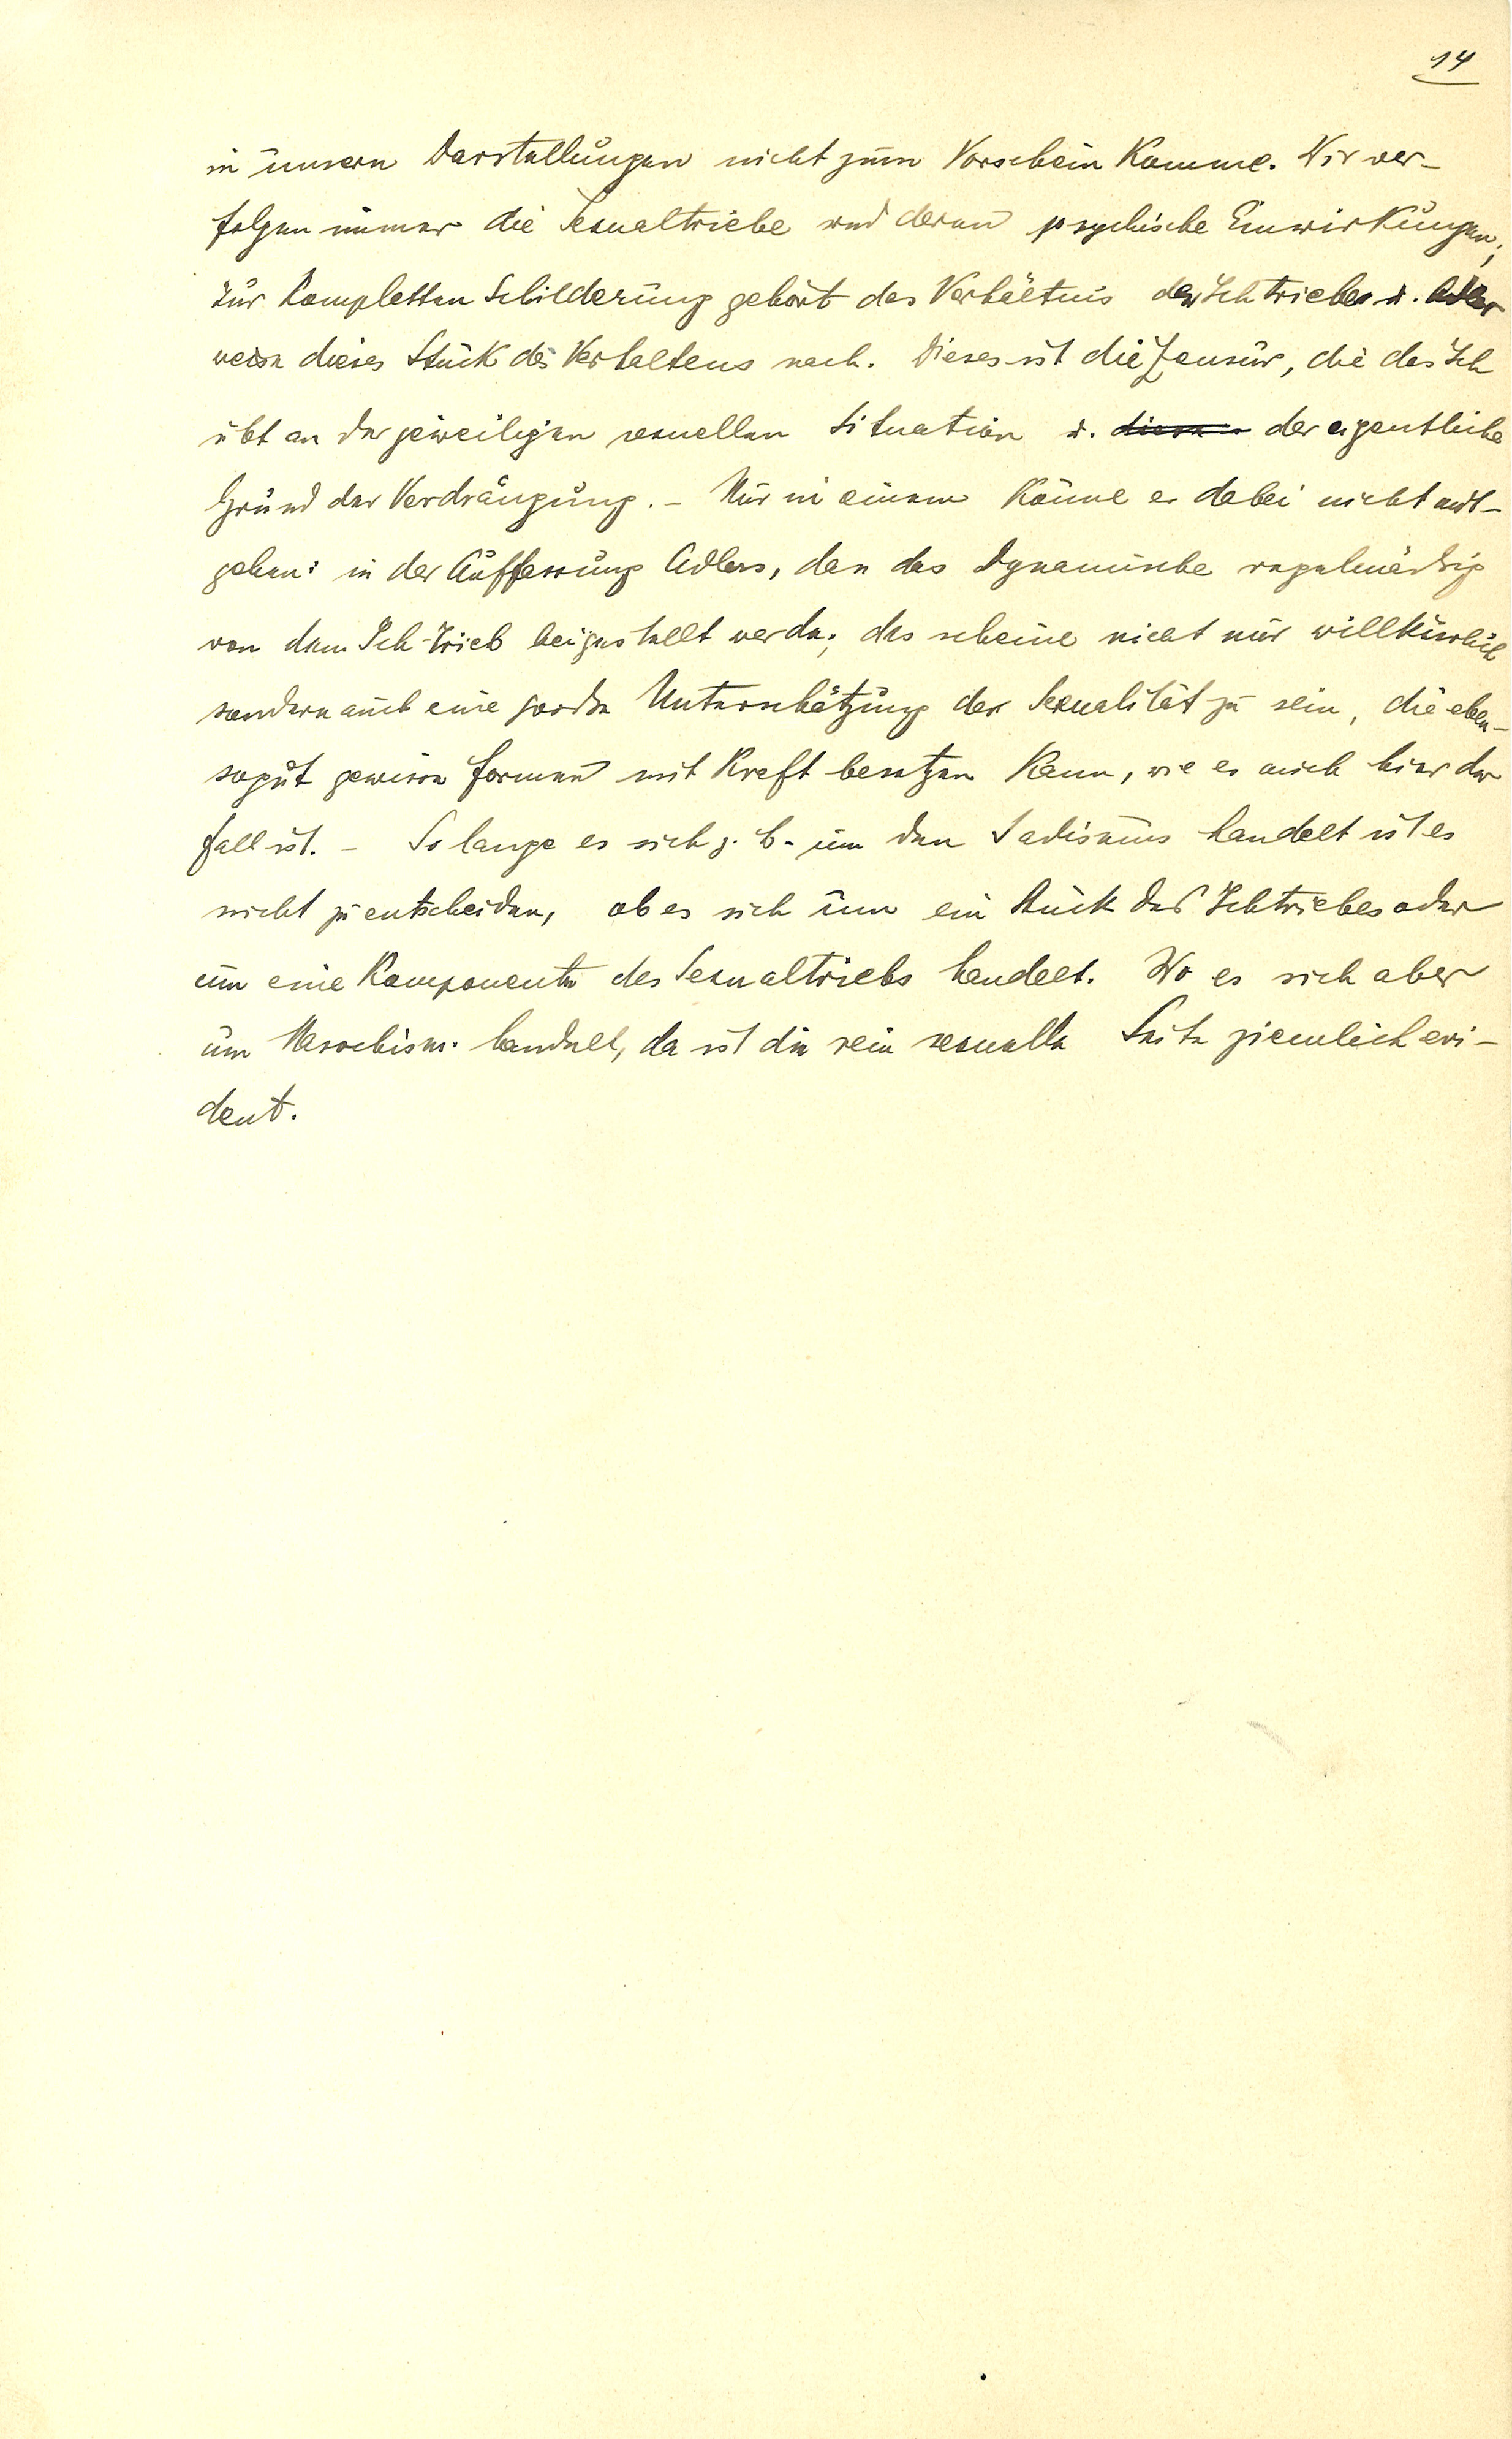 14
in unsern Darstellungen nicht zum Vorschein komme. Wir ver-
folgen immer die Sexualtriebe und deren psychische Einwirkungen;
zur kompletten Schilderung gehört das Verhältnis der Ichtriebe u. Adler
weise dieses Stück des Verhaltens nach. Dieses ist die Zensur, die das Ich
übt an der jeweiligen sexuellen Situation u. diese der eigentliche
Grund der Verdrängung. – Nur in einem könne er dabei nicht mit-
gehen: in der Auffassung Adlers, dass das Dynamische regelmäßig
von dem Ich-Trieb beigestellt werde; das scheine nicht nur willkürlich
sondern auch eine große Unterschätzung der Sexualität zu sein, die eben-
sogut gewisse Formen mit Kraft besetzen kann, wie es auch hier der
Fall ist. – So lange es sich z. B. um den Sadismus handelt ist es
nicht zu entscheiden, ob es sich um ein Stück des Ichtriebes oder
um eine Komponente des Sexualtriebs handelt. Wo es sich aber
um Masochism. handelt, da ist die rein sexuelle Seite ziemlich evi-
dent.